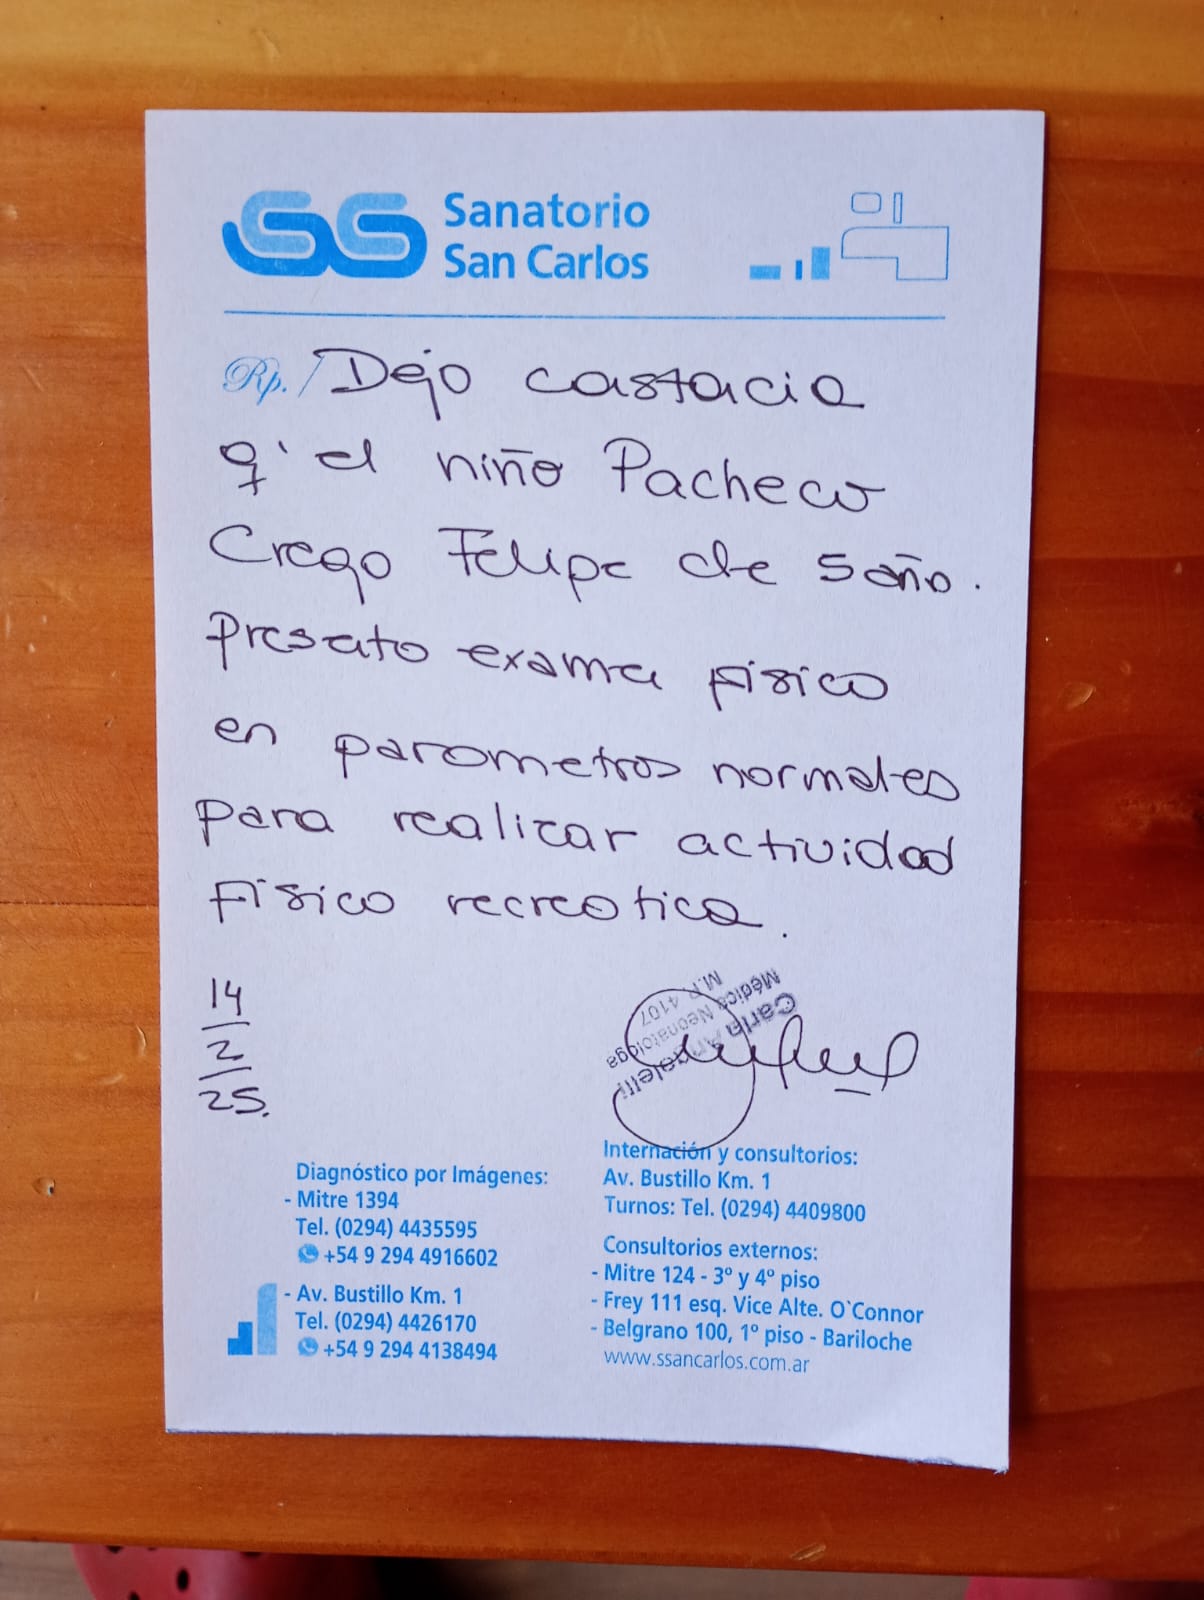 Sanatorio
San Carlos
Rp./ Dejo castacia
q' el niño Pacheco
Crego Felipe de 5 año.
presato exama físico
en parametros normales
para realizar actividad
físico recreatica.
14
2
25.
Carla Angalelli
Médica Neonatóloga
M.P. 4107
Diagnóstico por Imágenes:
- Mitre 1394
Tel. (0294) 4435595
+54 9 294 4916602
- Av. Bustillo Km. 1
Tel. (0294) 4426170
+54 9 294 4138494
Internación y consultorios:
Av. Bustillo Km. 1
Turnos: Tel. (0294) 4409800
Consultorios externos:
- Mitre 124 - 3º y 4º piso
- Frey 111 esq. Vice Alte. O`Connor
- Belgrano 100, 1º piso - Bariloche
www.ssancarlos.com.ar